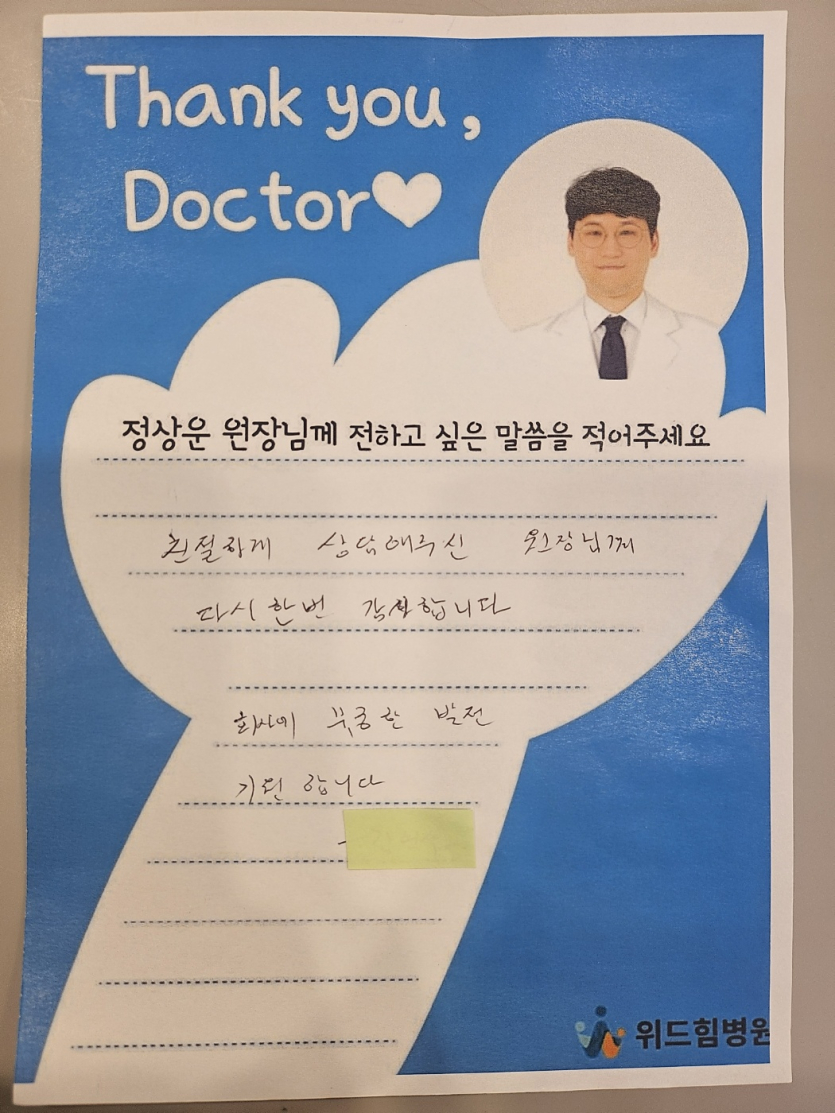 Thank you,
Doctor♥
정상운 원장님께 전하고 싶은 말씀을 적어주세요
친절하게 상담해주신 원장님께
다시한번 감사합니다
회사에 무궁한 발전
기원 합니다
위드힘병원